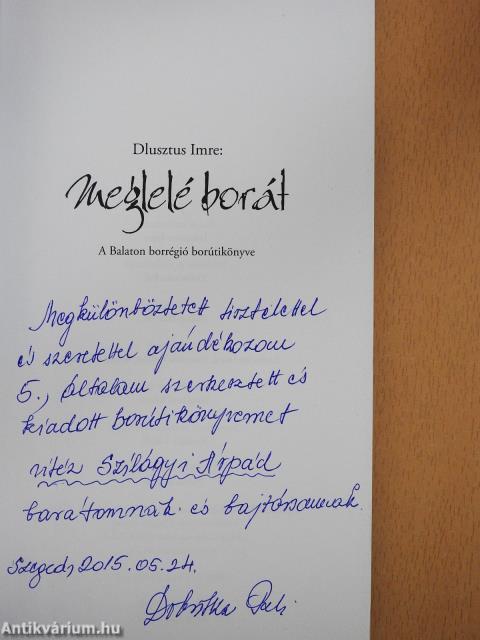 Dlusztus Imre:
Meglelé borát
A Balaton borrégió borútikönyve
Megkülönböztetett tisztelettel
és szeretettel ajándékozom
5., általam szerkesztett és
kiadott borútikönyvemet
vitéz Szilágyi Árpád
barátomnak és bajtársamnak.
Szeged, 2015.05.24.
Antikvárium.hu